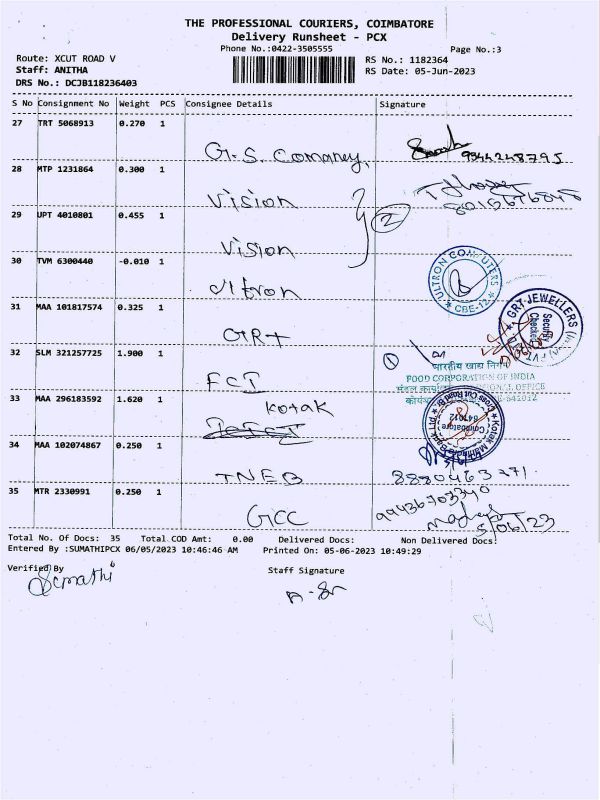 THE PROFESSIONAL COURIERS, COIMBATORE
Delivery Runsheet - PCX
Phone No.:0422-3505555
Page No.:3
Route: XCUT ROAD V
RS No.: 1182364
Staff: ANITHA
RS Date: 05-Jun-2023
DRS No.: DCJB118236403
S No Consignment No Weight PCS Consignee Details Signature
27 TRT 5068913 0.270 1
G.S. Comaney, 9944248795
28 MTP 1231864 0.300 1
Vision
29 UPT 4010801 0.455 1
2
Vision
30 TVM 6300440 -0.010 1
ULTRON COMPUTERS
* CBE-12 *
ultron
31 MAA 101817574 0.325 1
GRT JEWELLERS
Security
Checked
GRT
32 SLM 321257725 1.900 1
1
भारतीय खाद्य निगम
FOOD CORPORATION OF INDIA
FCI
33 MAA 296183592 1.620 1
kotak
Kotak Mahindra Bank Ltd
Cross Cut Road Br
Coimbatore
641012
34 MAA 102074867 0.250 1
TNEB 8880463271
35 MTR 2330991 0.250 1
99436703340
GCC
5/06/23
Total No. Of Docs: 35 Total COD Amt: 0.00 Delivered Docs: Non Delivered Docs:
Entered By :SUMATHIPCX 06/05/2023 10:46:46 AM Printed On: 05-06-2023 10:49:29
Verified By
Staff Signature
Sumathi